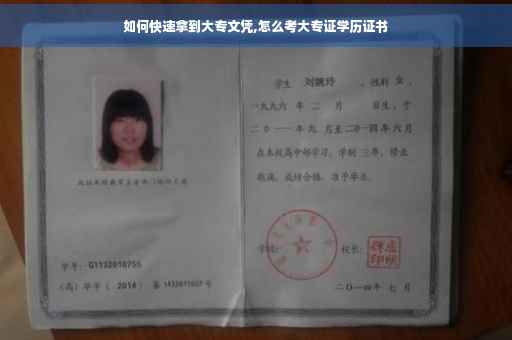 如何快速拿到大专文凭,怎么考大专证学历证书
学生 刘婉玲 ,性别 女 ,
一九九六 年 二 月 日生,于
二〇一一 年 九 月至二〇一四年 六 月
在本校高中部学习,学制 三 年,修业
期满,成绩合格,准予毕业。
学号: G1132010755
校长:
(高)毕字( 2014 )第 1432011027 号
二〇一四年 七 月